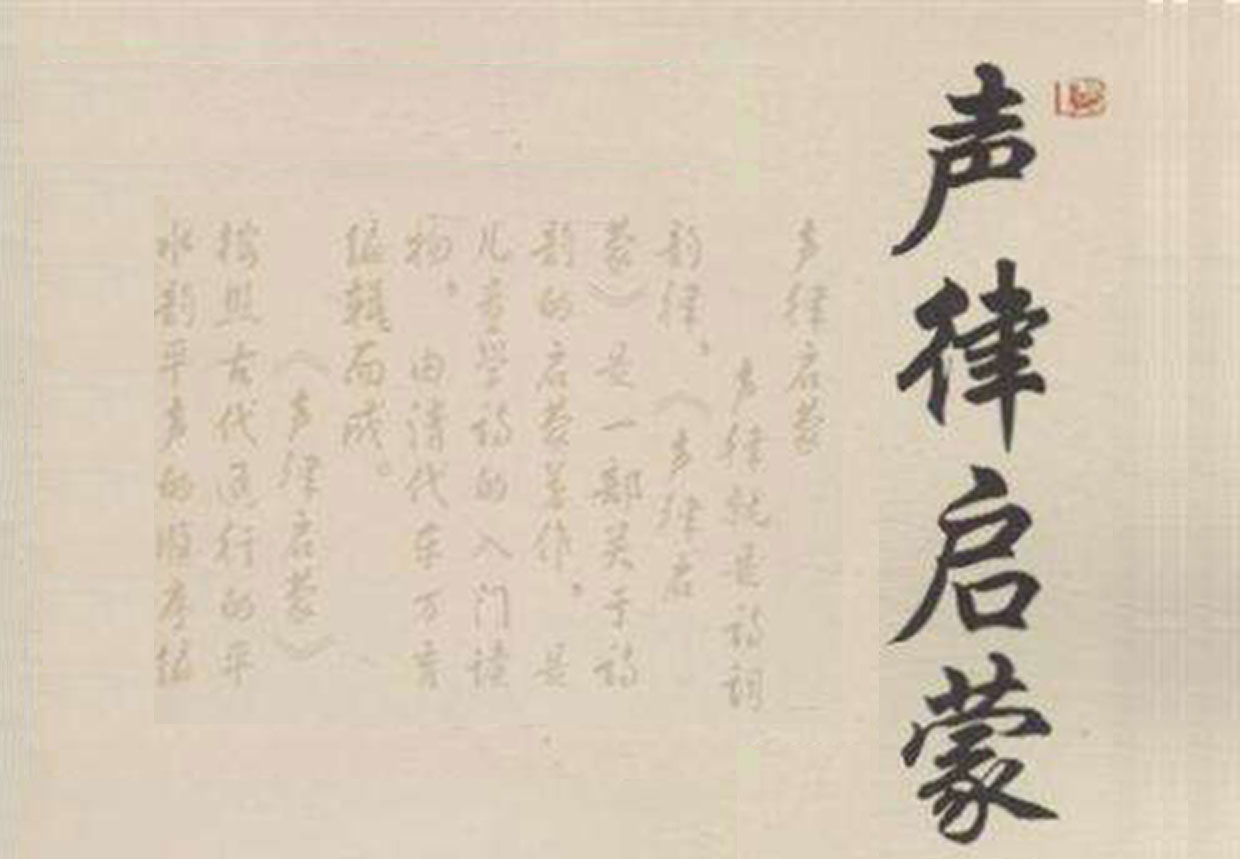 声律启蒙
声律启蒙
声律就是诗词
韵律。《声律启
蒙》是一部关于诗
韵的启蒙著作。是
儿童学诗的入门读
物。由清代车万育
编辑而成。
《声律启蒙》
按照古代通行的平
水韵平声的顺序编